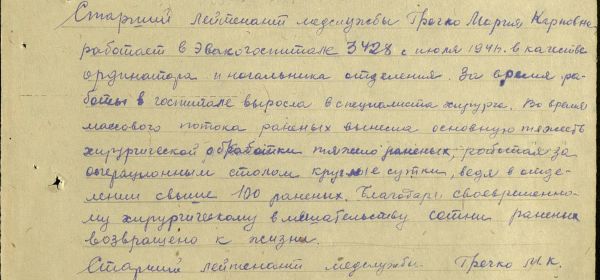 Старший лейтенант медслужбы Гречко Мария Карповна
работает в Эвакогоспитале 3428 с июля 1941г. в качестве
ординатора и начальника отделения. За время ра-
боты в госпитале выросла в специалиста хирурга. Во время
массового потока раненых вынесла основную тяжесть
хирургической обработки тяжело раненых, работая за
операционным столом круглые сутки, ведя в отде-
лении свыше 100 раненых. Благодаря своевременно-
му хирургическому вмешательству сотни раненых
возвращено к жизни.
Старший лейтенант медслужбы Гречко М.К.